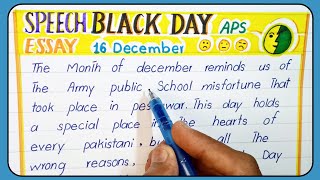 SPEECH BLACK DAY APS
ESSAY 16 December
The Month of december reminds us of
The Army public School misfortune That
took place in pes war. This day holds
a special place in The hearts of
every pakistani, bu all The
wrong reasons. Day